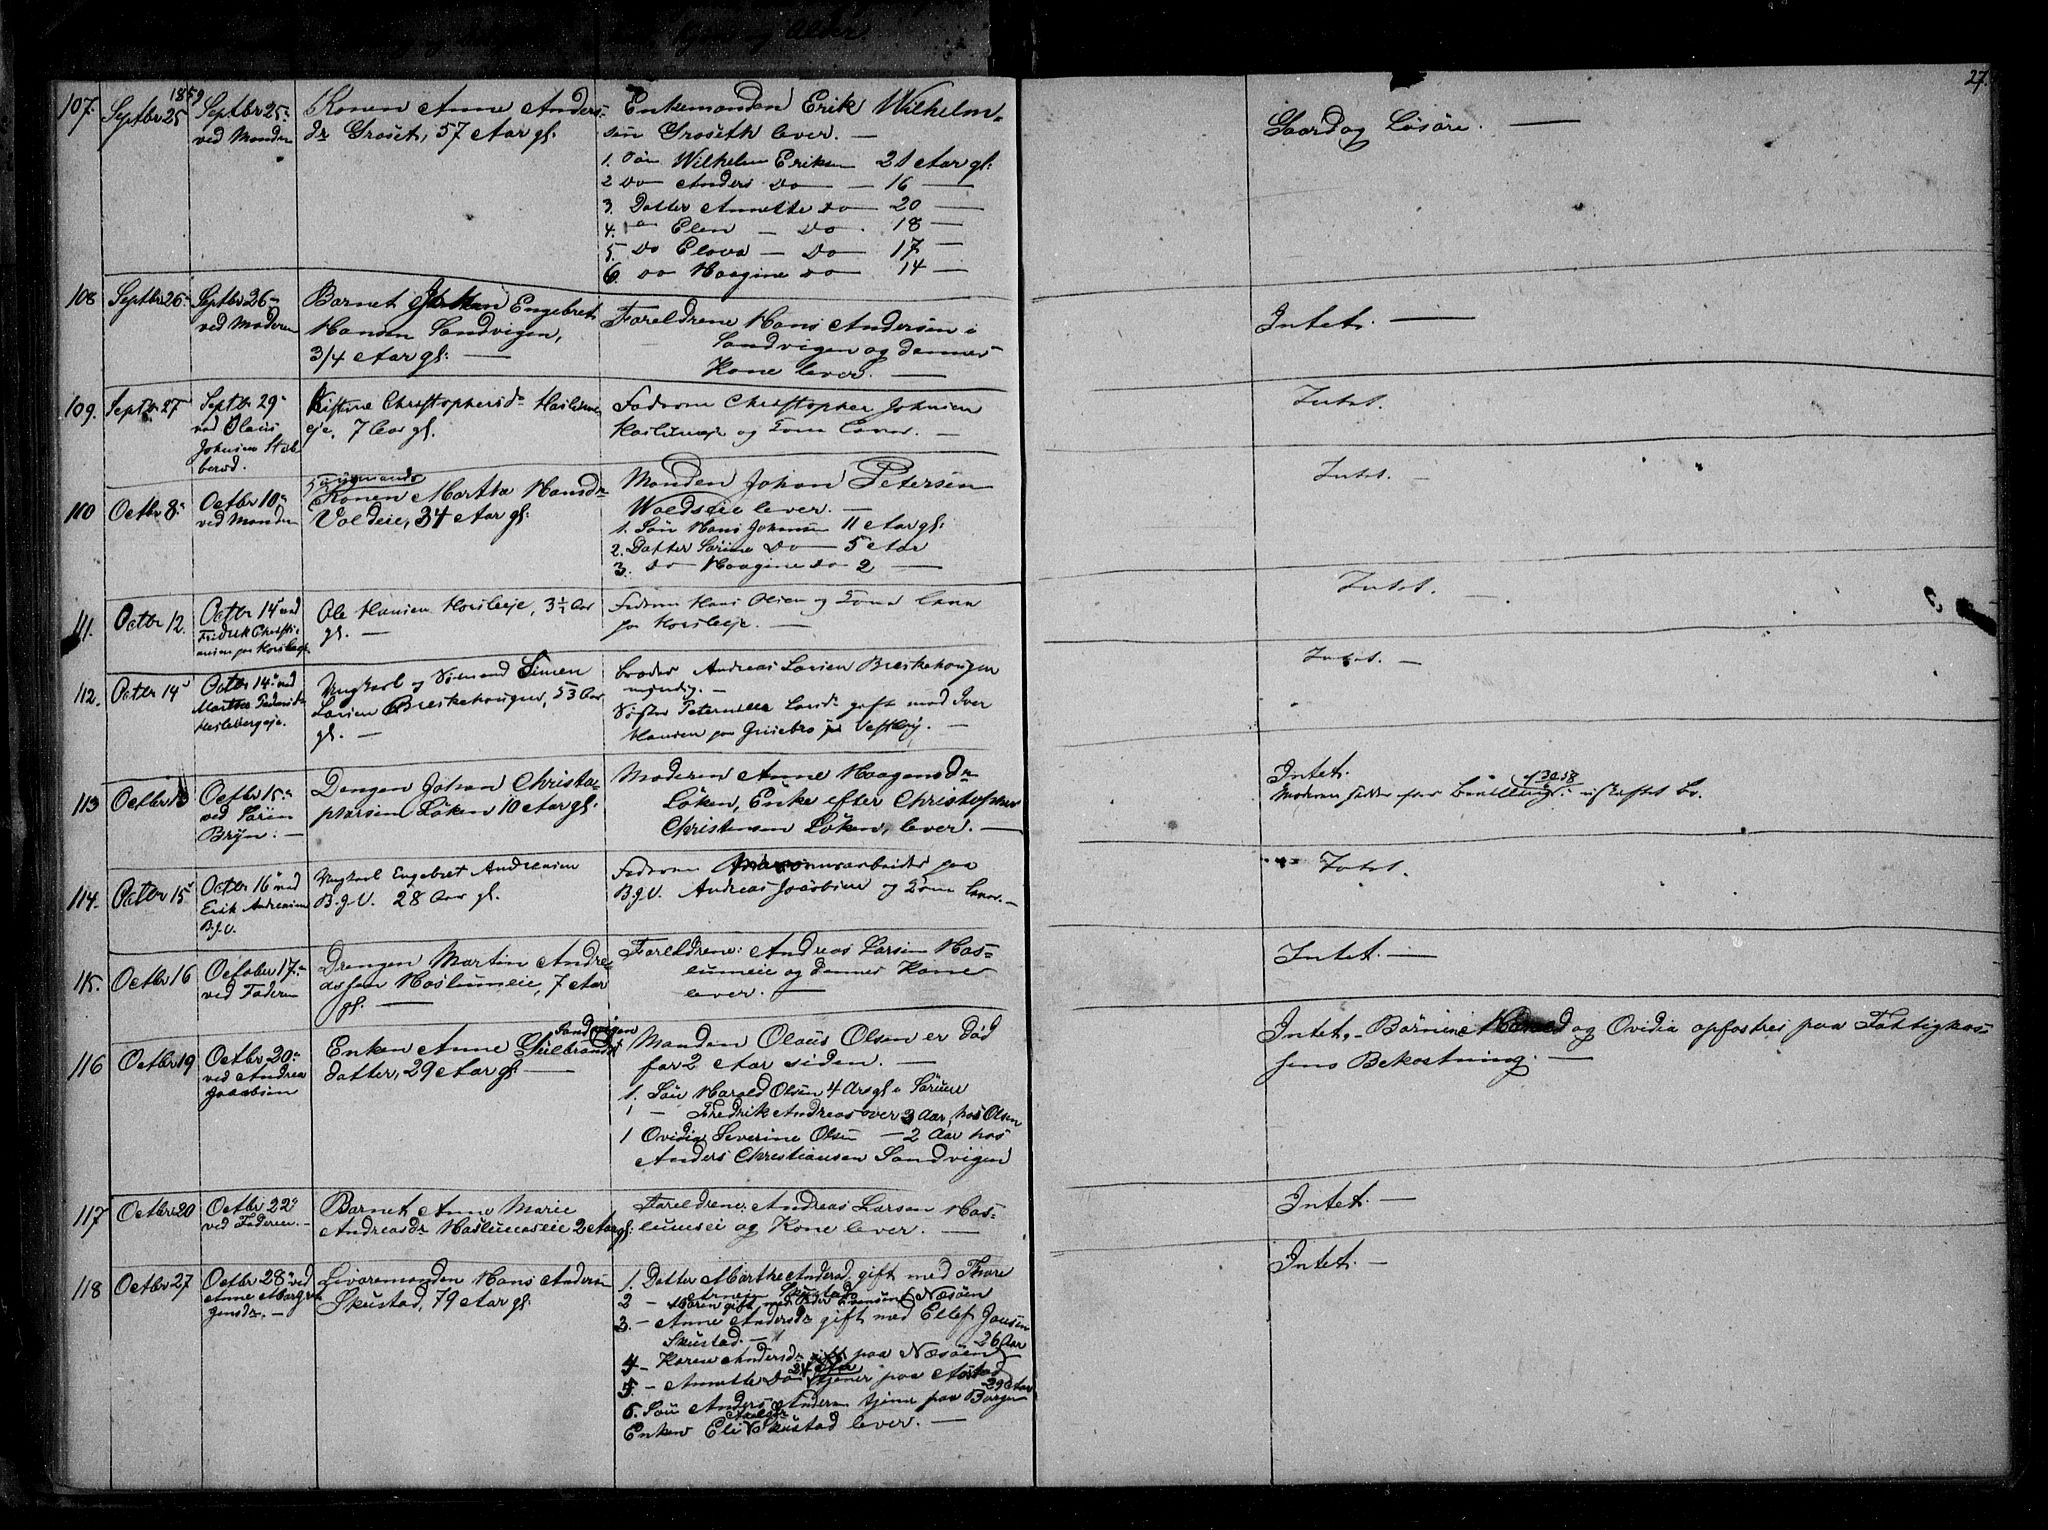 og Alder.
27.
107.
1859
Septbr 25
Septbr 25
ved Manden
Konen Anne Anders-
dr Groset, 57 Aar gl.
Enkemanden Erik Wilhelm-
sen Groseth lever. —
1. Søn Wilhelm Eriksen 21 Aar gl:
2 Do Anders Do — 16 —
3. Datter Annette Do 20 —
4. Do Elen — Do 18 —
5. Do Elova — Do 17 —
6. Do Haagine Do 14 —
Gaard og Løsöre. —
108
Septbr 26
Septbr 26
ved Moderen
Barnet Engebret
Hansen Sandvigen,
3/4 Aar gl: —
Foreldrene Hans Andersen i
Sandvigen og dennes
Kone lever. —
Intet. —
109.
Septbr 27
Septbr 29
ved Olaus
Johnsen Stab-
berud.
Kistine Christophersdr Haslums
eje, 7 Aar gl.
Faderen Christopher Johnsen
Haslumeje og Kone lever. —
Intet.
110
Octbr 8
Octbr 10
ved Manden
Konen Marthe Hansdr
Voldeie, 34 Aar gl:
Manden Johan Petersen
Woldseie lever. —
1. Søn Hans Johansen 11 Aar gl:
2. Datter Sørine Do — 5 Aar
3. Do Haagine Do 2 —
Intet. —
111.
Octbr 12.
Octbr 14 ved
Fredrik Christi-
ansen paa Horsleeje
Ole Hansen Horsleeje, 3½ Aar
gl. —
Faderen Hans Olsen og Kone lever
paa Horsleeje. —
Intet. —
112.
Octbr 14
Octbr 14 ved
Marthe Pedersdr
Haslebergeje.
Ungkarl og Sømand Simen
Larsen Breskehougen, 53 Aar
gl. —
Broder Andreas Larsen Breskehougen
myndig. —
Søster Peternille Larsdr gift med Iver
Hansen paa Vestby. —
Intet. —
113
Octbr 13
Octbr 15
ved Søren
Bryn. —
Drengen Johan Christo-
phersen Løken 10 Aar gl:
Moderen Anne Haagensdr
Løken, Enke efter Christopher
Christensen Løken, lever. —
Intet.
Moderen sidder efter Bevilling uskiftet Bo.
114.
Octbr 15
Octbr 16 ved
Erik Andreasen
B.J.V.
Ungkarl Engebret Andreasen
B.J.V. 28 Aar gl.
Faderen paa
B.J.V. Andreas Jacobsen og Kone lever. —
Intet.
115.
Octbr 16
October 17
ved Faderen
Drengen Martin Andre-
assen Haslumeie, 7 Aar
gl. —
Foreldrene: Andreas Larsen Has-
lumeie og dennes Kone
lever. —
Intet. —
116
Octbr 19
Octbr 20
ved Andreas
Jacobsen
Sandvigen
Enken Anne Gulbrands-
datter, 29 Aar gl. —
Manden Olaus Olsen er död
for 2 Aar siden. —
1. Søn Harald Olsen 4 Aar gl i
1 — Fredrik Andreas over 3 Aar, hos Olsen
1 Ovidia Severine Olsen — 2 Aar hos
Anders Christiansen Sandvigen
Intet. Börnene Harald og Ovidia opfostres paa Fattigkas-
sens Bekostning. —
117
Octbr 20
Octbr 22
ved Faderen. —
Barnet Anne Marie
Andreasdr Haslumseie 2 Aar gl:
Foreldrene Andreas Larsen Has-
lumseie og Kone lever. —
Intet. —
118
Octbr 27
Octbr 28 ved
Anne
Livøremanden Hans Andersen
Skustad, 79 Aar gl.
1. Datter Marthe Andersdr, gift med Thore
Arnesen Skustad
2 — Maren gift med Peder Evensen Næsøen
3. — Anne Andersdr gift med Ellef Jansen
Skustad. —
26 Aar
4 — Karen Andersdr paa Næsøen
24 Aar
5. — Annette Do tjener paa
29 Aar
6. Søn Anders Andersen tjener paa Borgen
Enken Eli Skustad lever. —
Intet. —